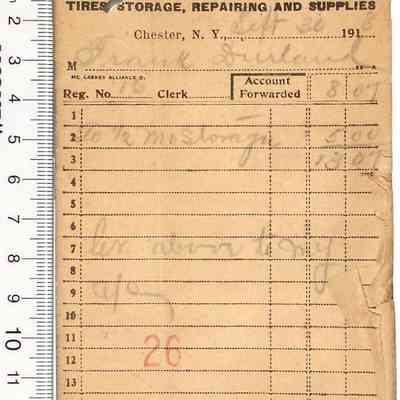 TIRES STORAGE, REPAIRING AND SUPPLIES
Chester, N. Y., Sept 30 191 6
M Frank
McCASKEY ALLIANCE O.
Reg. No. 16 Clerk Account Forwarded 8 07
1
2 to 1/2 mo Storage 5 00
3 13 07
4
5
6
7 above to my
8
9
10
11
12
13
26
2
3
4
5
6
7
8
9
10
11